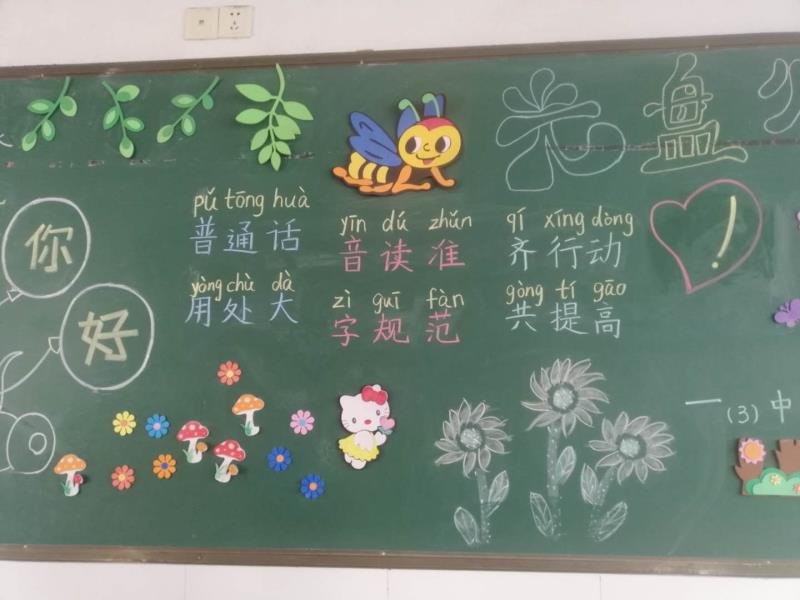 你
好
pǔ tōng huà
普通话
yòng chù dà
用处大
yīn dú zhǔn
音读准
zì guī fàn
字规范
qí xíng dòng
齐行动
gòng tí gāo
共提高
!
一(3)中